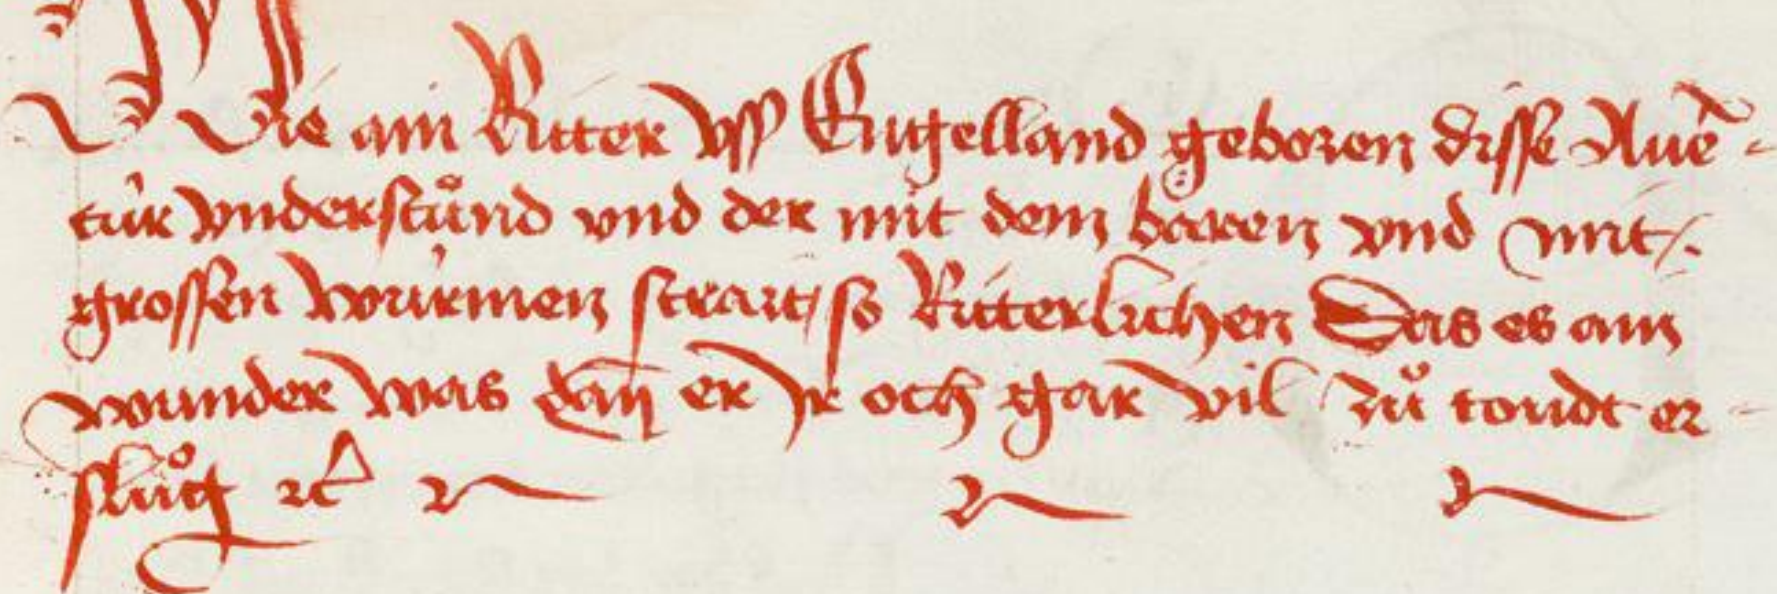 Wie ain Ritter vſſ Engelland geboren diſſe Auē-
túr vnderſtuͦnd vnd der mit dem baͤren vnd mit
groſſen wúrmen ſtrait / ſo Ritterlichen Das es ain
wunder was dañ er Ir och gar vil zuͦ toudt er-
ſluͦg ꝛc